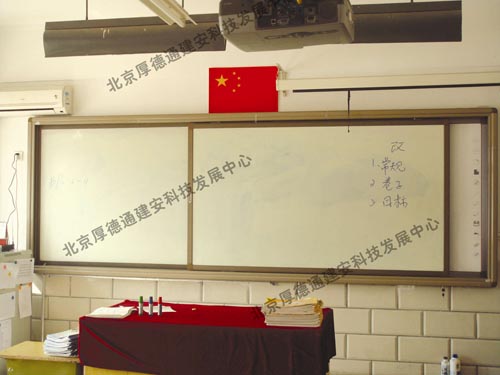 北京厚德通建安科技发展中心
北京厚德通建安科技发展中心
北京厚德通建安科技发展中心
汉
1. 常规
2 卷子
3 目标